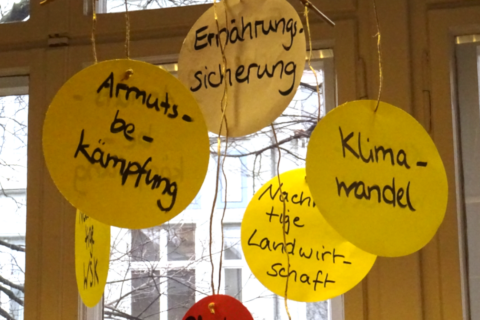 Ernährungs-
sicherung
Armuts-
be-
kämpfung
Klima-
wandel
tige
Landwirt-
schaft
WSK